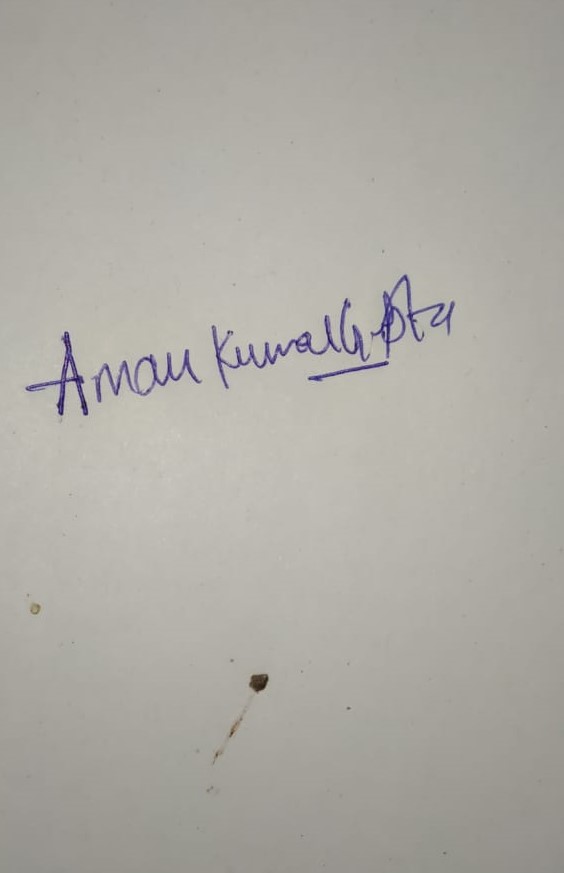 Aman Kumar Gupta